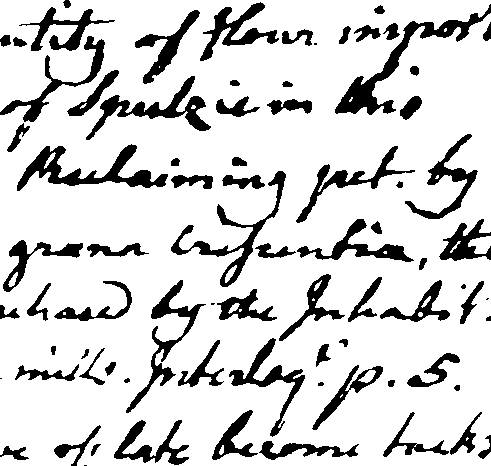 ntity of flour import
of Spulzie in this
Reclaiming pet. by
grana crescentia, the
chased by the Inhabit
mills. Interloqr. p. 5.
ve of late become tacks